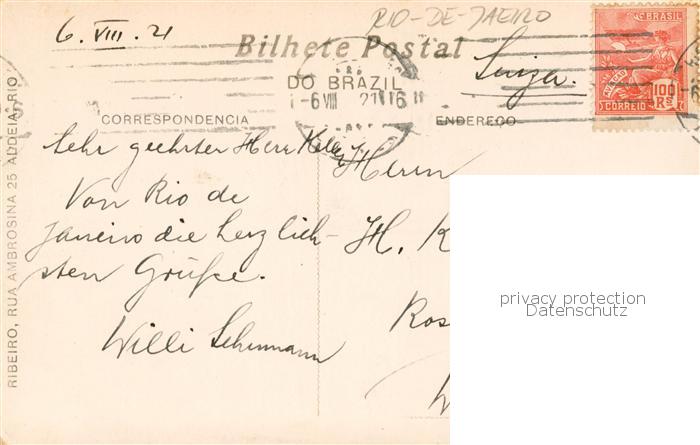 RIO-DE-JAEIRO
6. VIII. 21
Bilhete Postal
Suiza.
BRASIL
AVIAÇÃO
CORREIO 100 RS
DO BRAZIL
1-6 VIII 21 16
CORRESPONDENCIA
ENDEREÇO
Sehr geehrter Herr Keller
Von Rio de
Janeiro die herzlich-
sten Grüße.
Willi Schumann
Herrn
H. K
Ros
W
privacy protection
Datenschutz
RIBEIRO, RUA AMBROSINA 25 ALDEIA, RIO